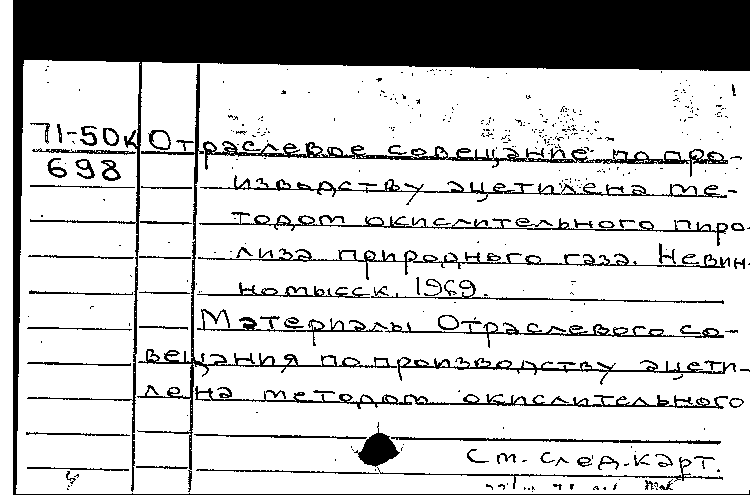 71-50к Отраслевое совещание по про-
698
изводству ацетилена ме-
тодом окислительного пиро-
лиза природного газа. Невин-
номысск. 1969.
Материалы Отраслевого со-
вещания по производству ацети-
лена методом окислительного
См. след. карт.